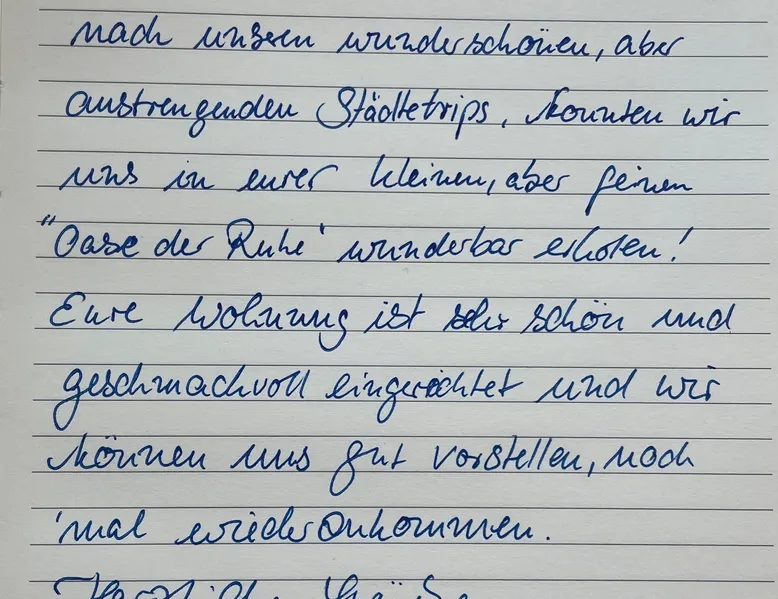 nach unseren wunderschönen, aber
anstrengenden Städtetrips, konnten wir
uns in eurer kleinen, aber feinen
"Oase der Ruhe' wunderbar erholen!
Eure Wohnung ist sehr schön und
geschmackvoll eingerichtet und wir
können uns gut vorstellen, noch
'mal wiederankommen.